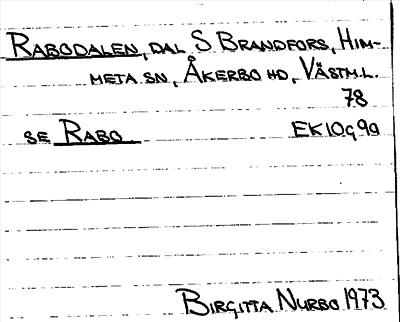 RABODALEN, DAL S BRANDFORS, HIM-
META SN, ÅKERBO HD, VÄSTM.L.
78
SE RABO EK10g9a
BIRGITTA NURBO 1973